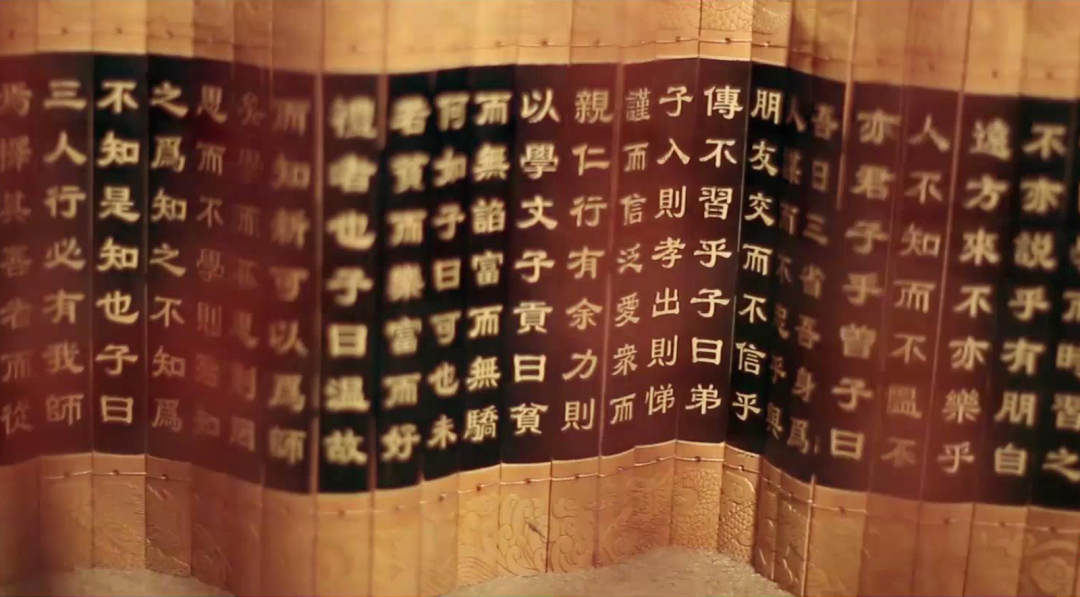 而時習之
不亦説乎有朋自
遠方來不亦樂乎
人不知而不慍不
亦君子乎曾子曰
吾日三省吾身爲
人謀而不忠乎與
朋友交而不信乎
傳不習乎子曰弟
子入則孝出則悌
謹而信泛愛衆而
親仁行有余力則
以學文子貢曰貧
而無諂富而無驕
何如子曰可也未
若貧而樂富而好
禮者也子曰温故
而知新可以爲師
矣學而則罔
思而不學則殆知
之爲知之不知爲
不知是知也子曰
三人行必有我師
焉擇其善者而從